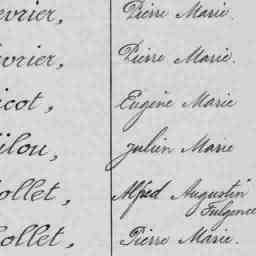 evrier, Pierre Marie.
evrier, Pierre Marie.
icot, Eugène Marie
ilou, Julien Marie
ollet, Alfred Augustin
Fulgence
ollet, Pierre Marie.